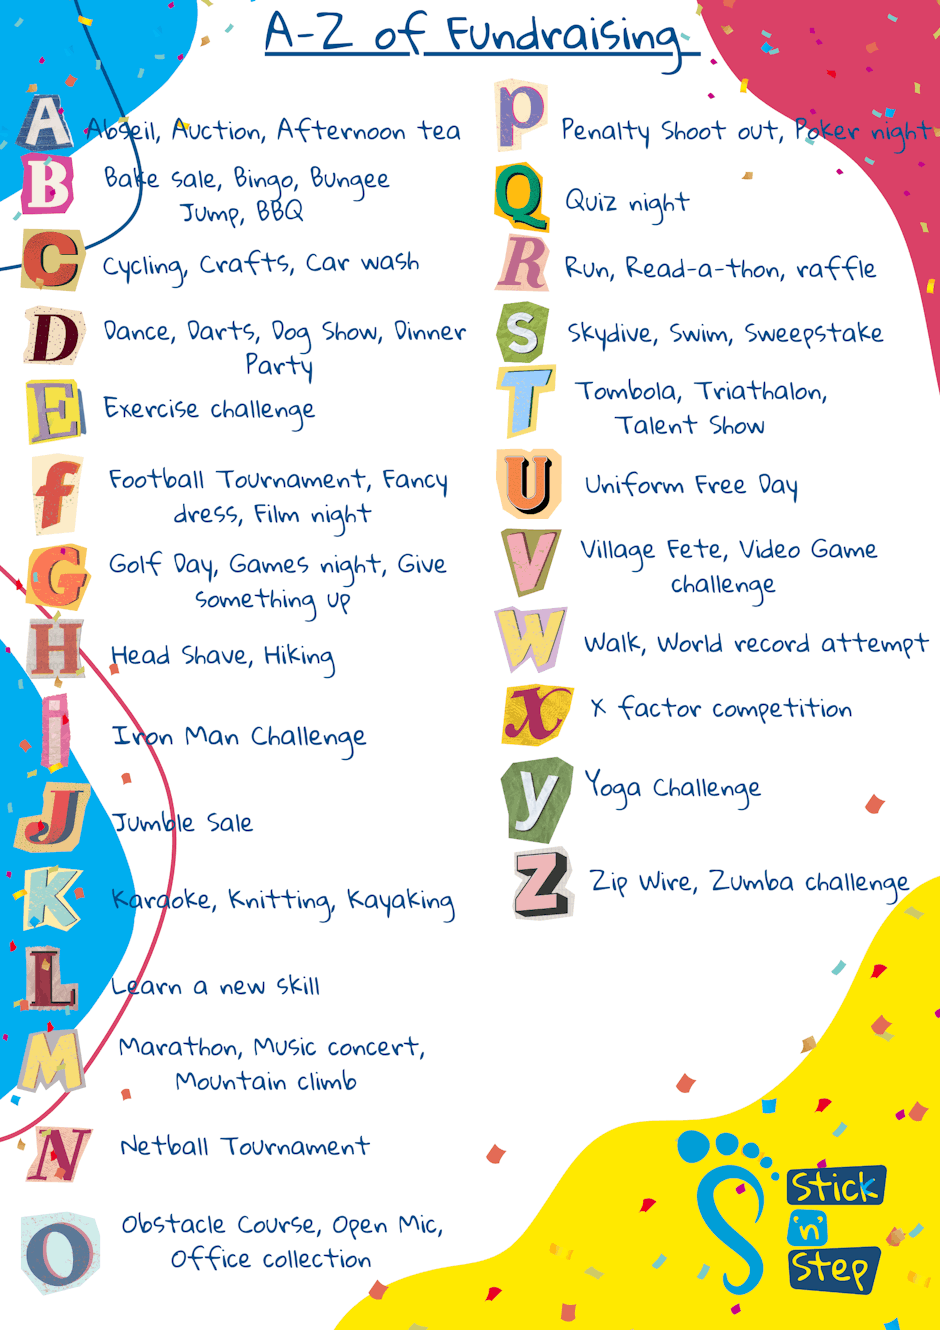 A-Z of Fundraising
A Abseil, Auction, Afternoon tea
B Bake sale, Bingo, Bungee
Jump, BBQ
C Cycling, Crafts, Car wash
D Dance, Darts, Dog Show, Dinner
Party
E Exercise challenge
f Football Tournament, Fancy
dress, Film night
G Golf Day, Games night, Give
something up
H Head Shave, Hiking
i Iron Man Challenge
J Jumble Sale
K Karaoke, Knitting, Kayaking
L Learn a new skill
M Marathon, Music concert,
Mountain climb
N Netball Tournament
O Obstacle Course, Open Mic,
Office collection
p Penalty Shoot out, Poker night
Q Quiz night
R Run, Read-a-thon, raffle
S Skydive, Swim, Sweepstake
T Tombola, Triathalon,
Talent Show
U Uniform Free Day
V Village Fete, Video Game
challenge
W Walk, World record attempt
X X factor competition
y Yoga Challenge
Z Zip Wire, Zumba challenge
Stick
'n'
Step